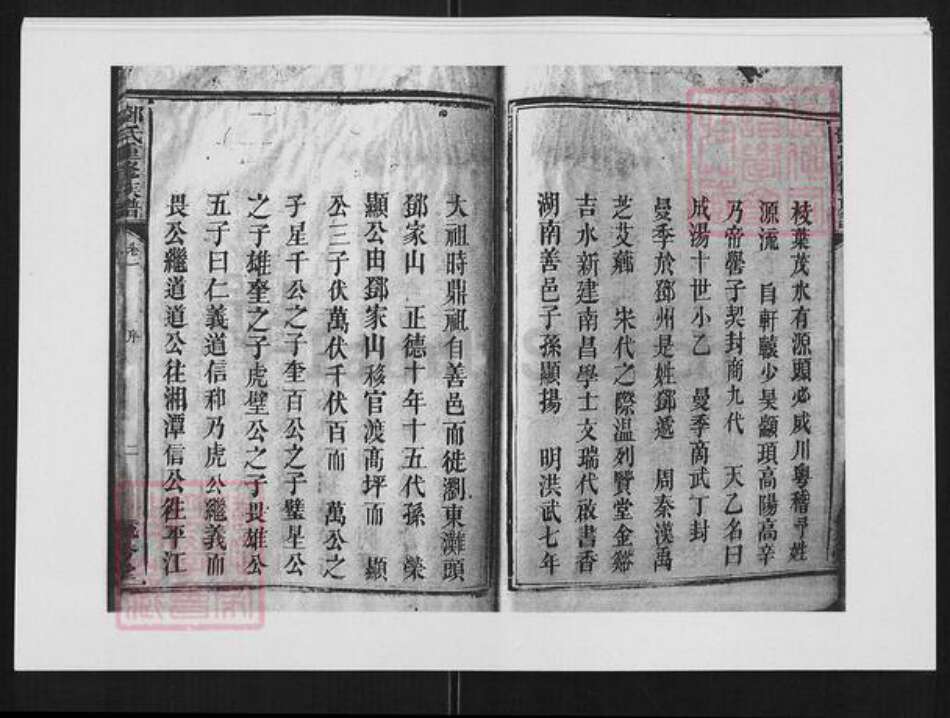 枝葉茂水有源頭必咸川粵稽予姓
源流 自軒轅少昊顓頊高陽高辛
乃帝嚳子契封商九代 天乙名曰
成湯十世小乙 曼季商武丁封
曼季於鄧州是姓鄧遞 周秦漢禹
芝艾蘓 宋代之際温列賢堂金谿
吉水新建南昌學士文瑞代啟書香
湖南善邑子孫顯揚 明洪武七年
大祖時鼎祖自善邑而徙瀏東灘頭
鄧家山 正德十年十五代孫 榮
顯公由鄧家山移官渡高坪而 顯
公三子伏萬伏千伏百而 萬公之
子星千公之子奎百公之子璧星公
之子雄奎之子虎璧公之子畏雄公
五子曰仁義道信和乃虎公繼義而
畏公繼道道公往湘潭信公徃平江
鄧氏重修族譜 卷一 序 二